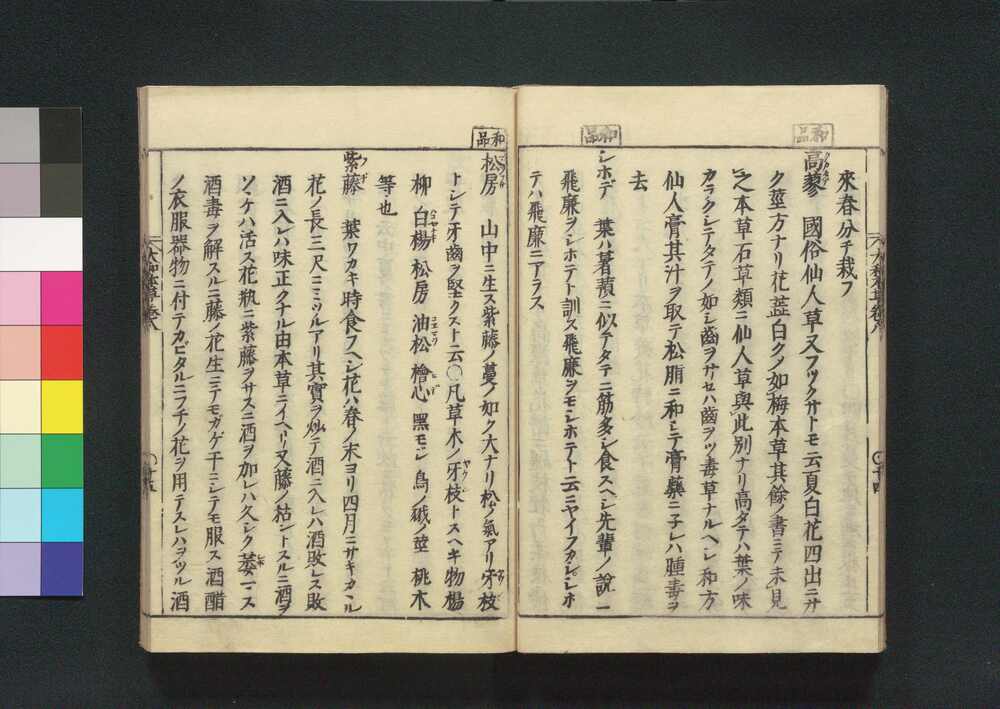 和品
和品
來春分チ栽フ
高蓼 國俗仙人草又フツクサトモ云夏白花四出ニサ
ク莖方ナリ花蕋白クノ如梅本草其餘ノ書ニテ未見
之本草石草類ニ仙人草與此別ナリ高タテハ葉ノ味
カラクシテタテノ如シ齒ヲサセハ齒ヲツ毒草ナルヘシ和方
仙人膏其汁ヲ取テ松脂ニ和シテ膏藥ニ子レハ腫毒ヲ
去
シホデ 葉ハ萆薢ニ似テタテニ筋多シ食スヘシ先輩ノ說ニ
飛廉ヲシホテト訓ス飛廉ヲモシホテト云ニヤイフカシシホ
テハ飛廉ニアラス
和品
松房 山中ニ生ス紫藤ノ蔓ノ如ク大ナリ松ノ氣アリ牙枝
トシテ牙齒ヲ堅クスト云〇凡草木ノ牙枝トスヘキ物楊
柳 白楊 松房 油松 檜心 黑モシ 烏ノ莖 桃木
等也
紫藤 葉ワカキ時食フヘシ花ハ春ノ末ヨリ四月ニサキカヽル
花ノ長三尺ニミツルアリ其實ヲ炒テ酒ニ入レハ酒敗レス敗
酒ニ入レハ味正クナル由本草ニイヘリ又藤ノ枯ントスルニ酒ヲ
ソヽケハ活ス花瓶ニ紫藤ヲサスニ酒ヲ加レハ久シク萎マス
酒毒ヲ解スルニ藤ノ花生ニテモカゲ干ニシテモ服ス酒醋
ノ衣服器物ニ付テカビタルニフチノ花ヲ用テスレハヲツル酒